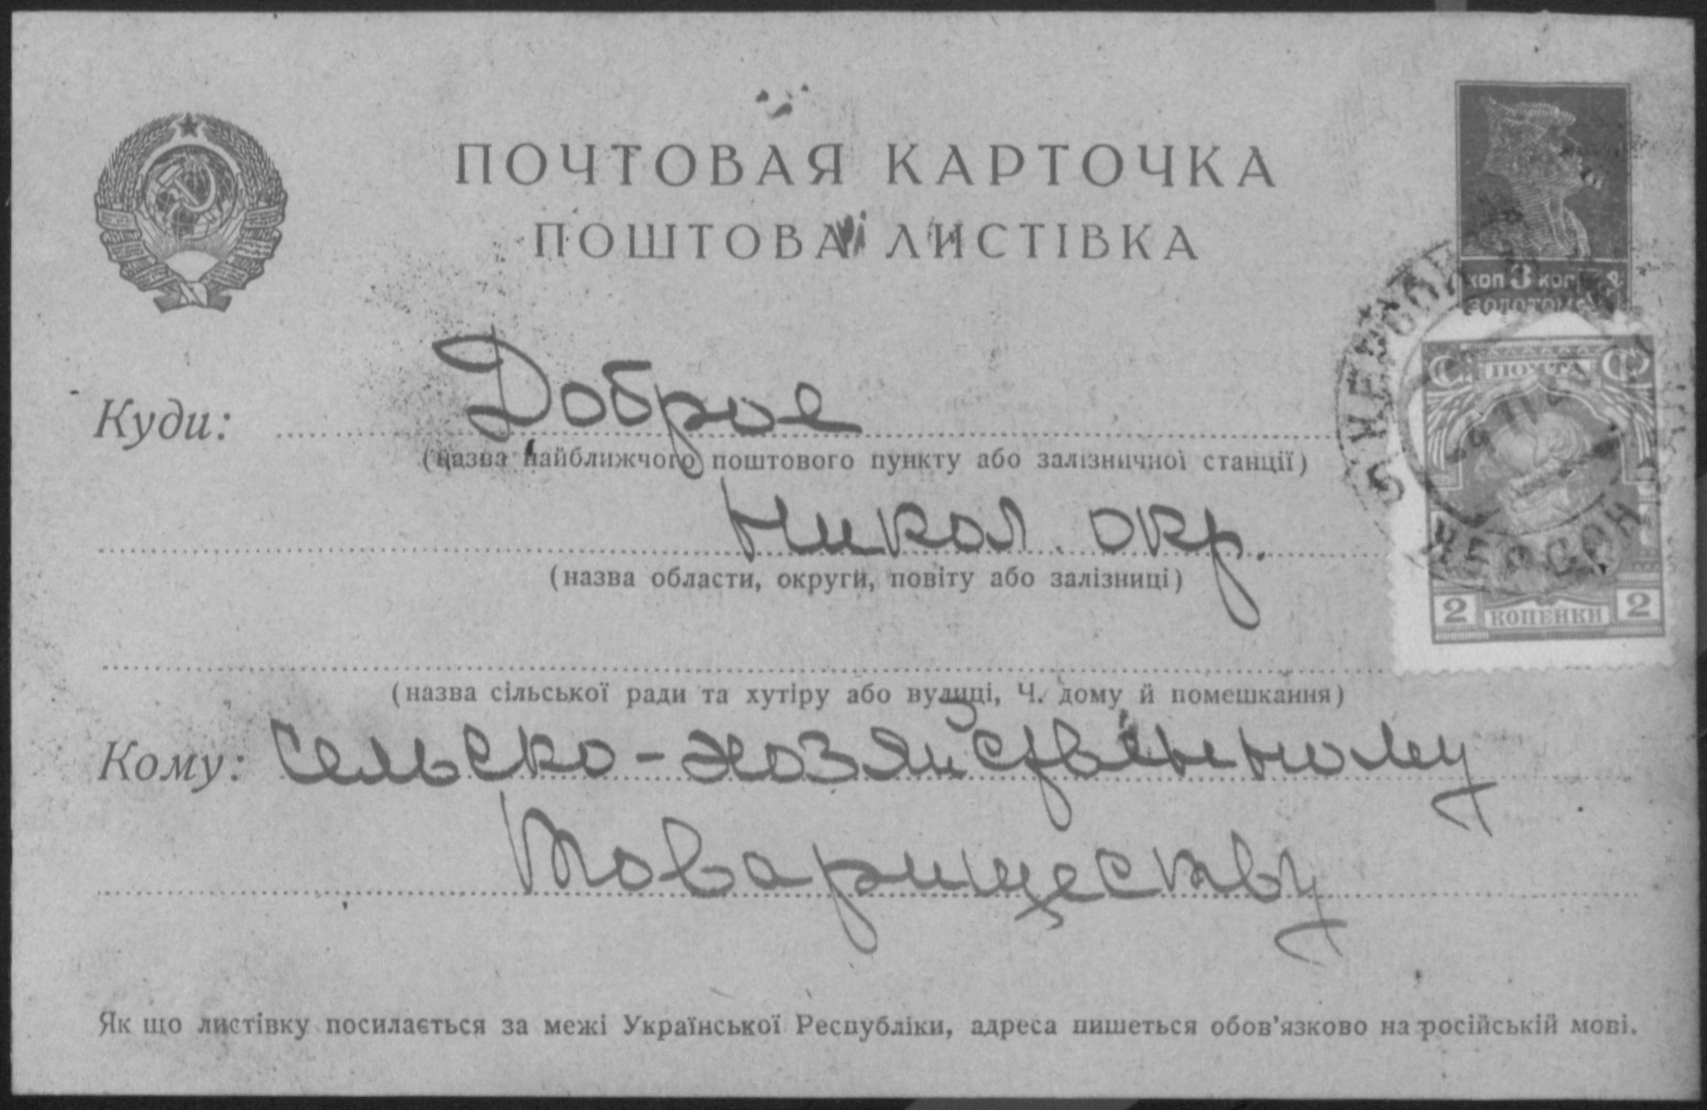 ПОЧТОВАЯ КАРТОЧКА
ПОШТОВА ЛИСТІВКА
коп 3 коп
золотом
ПОЧТА
Куди: Доброе
(назва найближчого поштового пункту або залізничної станції)
Никол. окр.
(назва области, округи, повіту або залізниці)
ХЕРСОН
2 КОПЕЙКИ 2
(назва сільської ради та хутіру або вулиці, Ч. дому й помешкання)
Кому: Сельско-хозяйственному
Товариществу
Як що листівку посилається за межі Української Республіки, адреса пишеться обов'язково на російській мові.